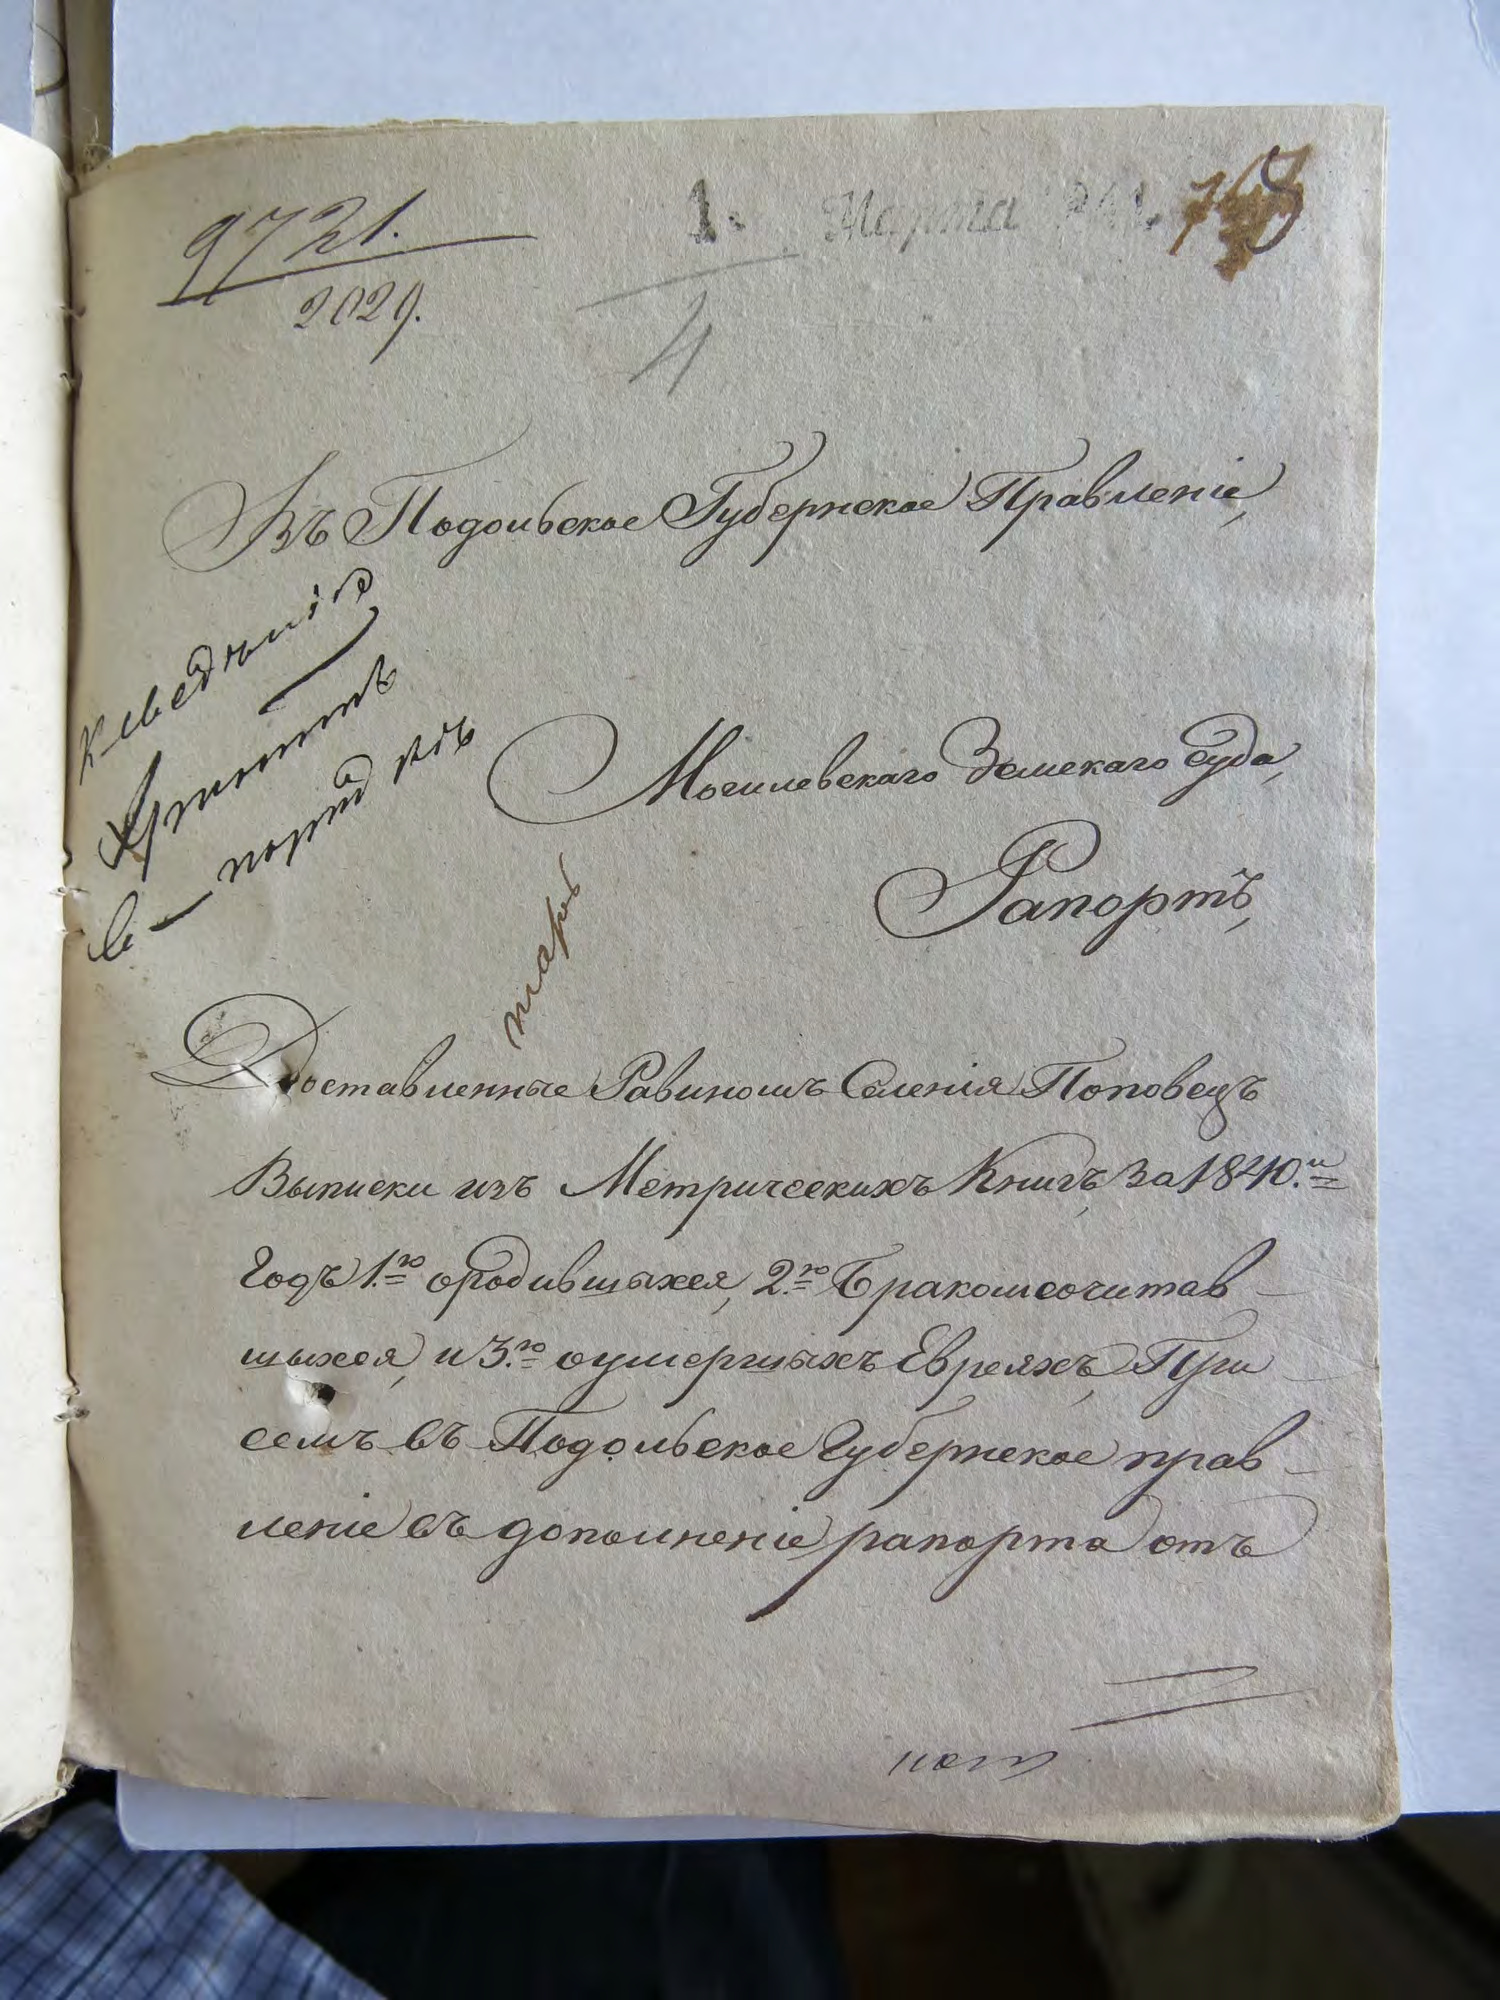 9721.
2029.
1. Марта 1841.
4
Въ Подольское Губернское Правленіе,
К сведѣнію
и
принять
в порядкѣ
Могилевскаго Земскаго Суда,
Рапортъ,
Доставленные Равиномъ Селенія Поповецъ
Выписки изъ Метрическихъ Книгъ, за 1840.й
Годъ 1.го ородившыхся, 2.го Бракомсочитав-
шыхся, и 3.го оумершыхъ Евреяхъ, При
семъ въ Подольское Губернское прав-
леніе въ дополненіе рапорта отъ